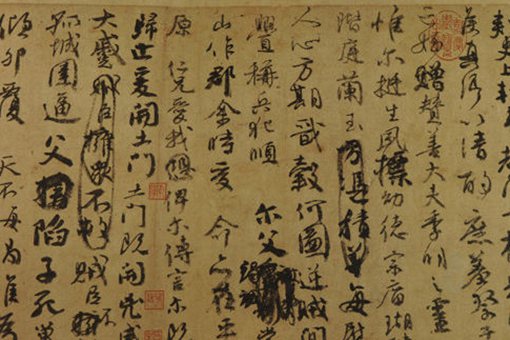 史上輕車
侯真卿以清酌庶羞祭于
亡姪贈贊善大夫季明之靈
惟爾挺生夙標幼德宗廟瑚
階庭蘭玉方憑積善每慰
人心方期戩穀何圖逆賊間
釁稱兵犯順 爾父竭誠常
山作郡余時受 命亦在平
原 仁兄愛我俾爾傳言爾既
歸止爰開土門土門既開凶威
大蹙賊臣擁衆不救賊臣不
孤城圍逼父擒陷子死巢
傾卵覆 天不悔禍誰爲